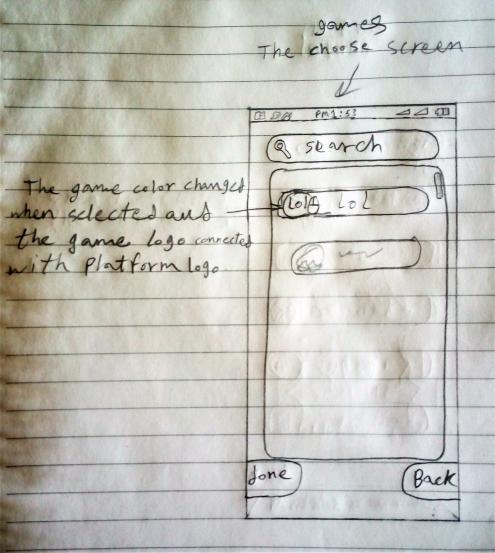 games
The choose screen
PM 1:53
search
The game color changed
when selected and
the game logo connected
with Platform logo
LOL LOL
done
Back